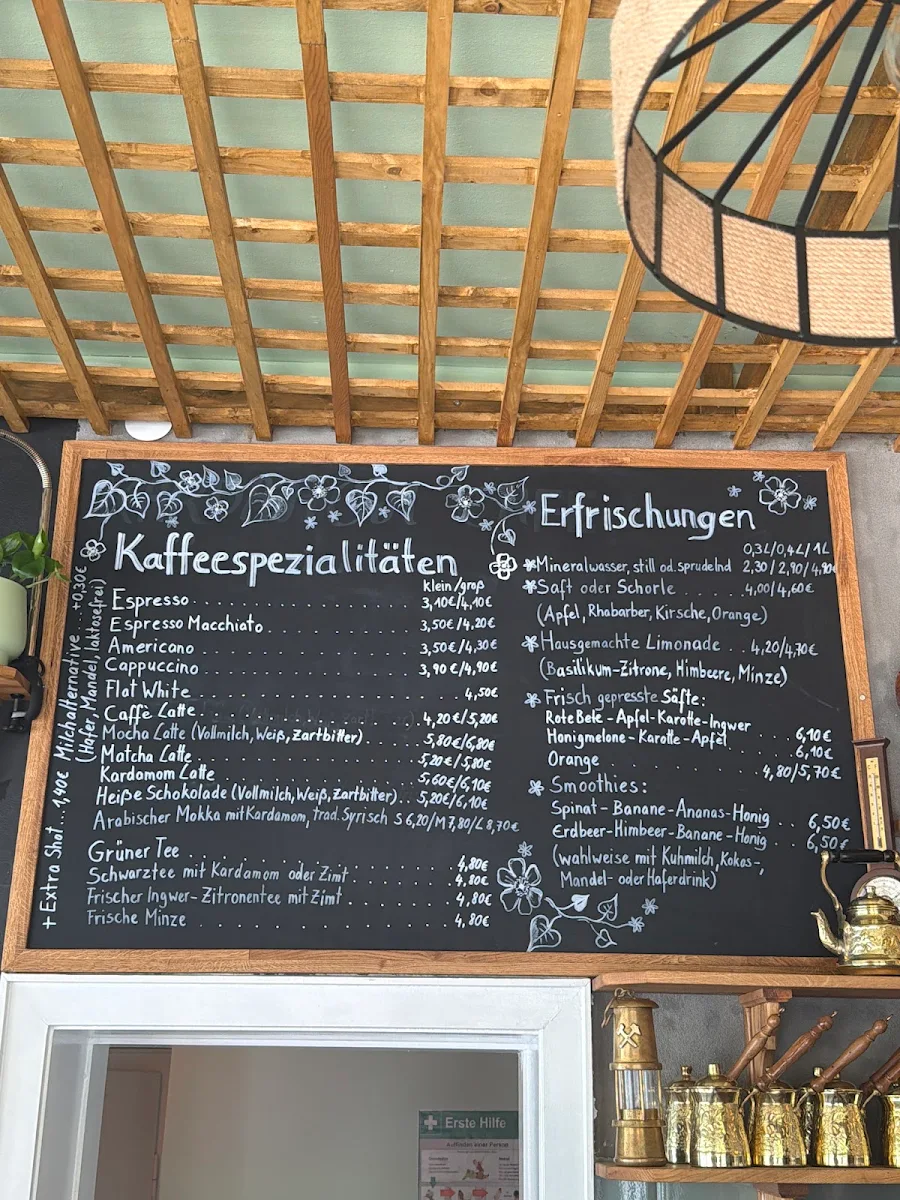 Kaffeespezialitäten
Klein/groß
Espresso 3,10€/4,10€
Espresso Macchiato 3,50€/4.20€
Americano 3,50€/4,30€
Cappuccino 3,90€/4,90€
Flat White 4,50€
Caffè Latte 4,20€/5,20€
Mocha Latte (Vollmilch, Weiß, Zartbitter) 5,80€/6,80€
Matcha Latte 5,20€/5,80€
Kardamom Latte 5,60€/6,10€
Heiße Schokolade (Vollmilch, Weiß, Zartbitter) 5,20€/6,10€
Arabischer Mokka mit Kardamom, trad. Syrisch S 6,20/M 7,80/L 8,70€
Grüner Tee 4,80€
Schwarztee mit Kardamom oder Zimt 4,80€
Frischer Ingwer-Zitronentee mit Zimt 4,80€
Frische Minze 4,80€
+ Extra Shot... 1,40€ Milchalternative ...+0,30€
(Hafer, Mandel, laktosefrei)
Erfrischungen
0,3L/0,4L/1L
Mineralwasser, still od. sprudelnd 2,30/2,90/4,90€
Saft oder Schorle 4,00/4,60€
(Apfel, Rhabarber, Kirsche, Orange)
Hausgemachte Limonade 4,20/4,70€
(Basilikum-Zitrone, Himbeere, Minze)
Frisch gepresste Säfte:
Rote Bete-Apfel-Karotte-Ingwer 6,10€
Honigmelone-Karotte-Apfel 6,10€
Orange 4,80/5,70€
Smoothies:
Spinat-Banane-Ananas-Honig 6,50€
Erdbeer-Himbeer-Banane-Honig 6,50€
(wahlweise mit Kuhmilch, Kokos-,
Mandel- oder Haferdrink)
Erste Hilfe